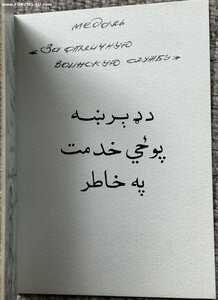 © FORUMS-SU.COM
медаль
"За отличную
воинскую службу"
د ډېر ښه
پوځي خدمت
په خاطر